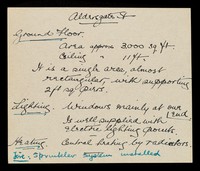 Aldersgate St
Ground Floor
Area approx 3000 sq. ft.
Ceiling " 11 ft.
It is a single area, almost
rectangular, with supporting
2 ft sq. piers.
Lighting. Windows mainly at one
end.
Is well supplied with
electric lighting points.
Heating. Central heating by radiators.
Fire, Sprinkler system installed